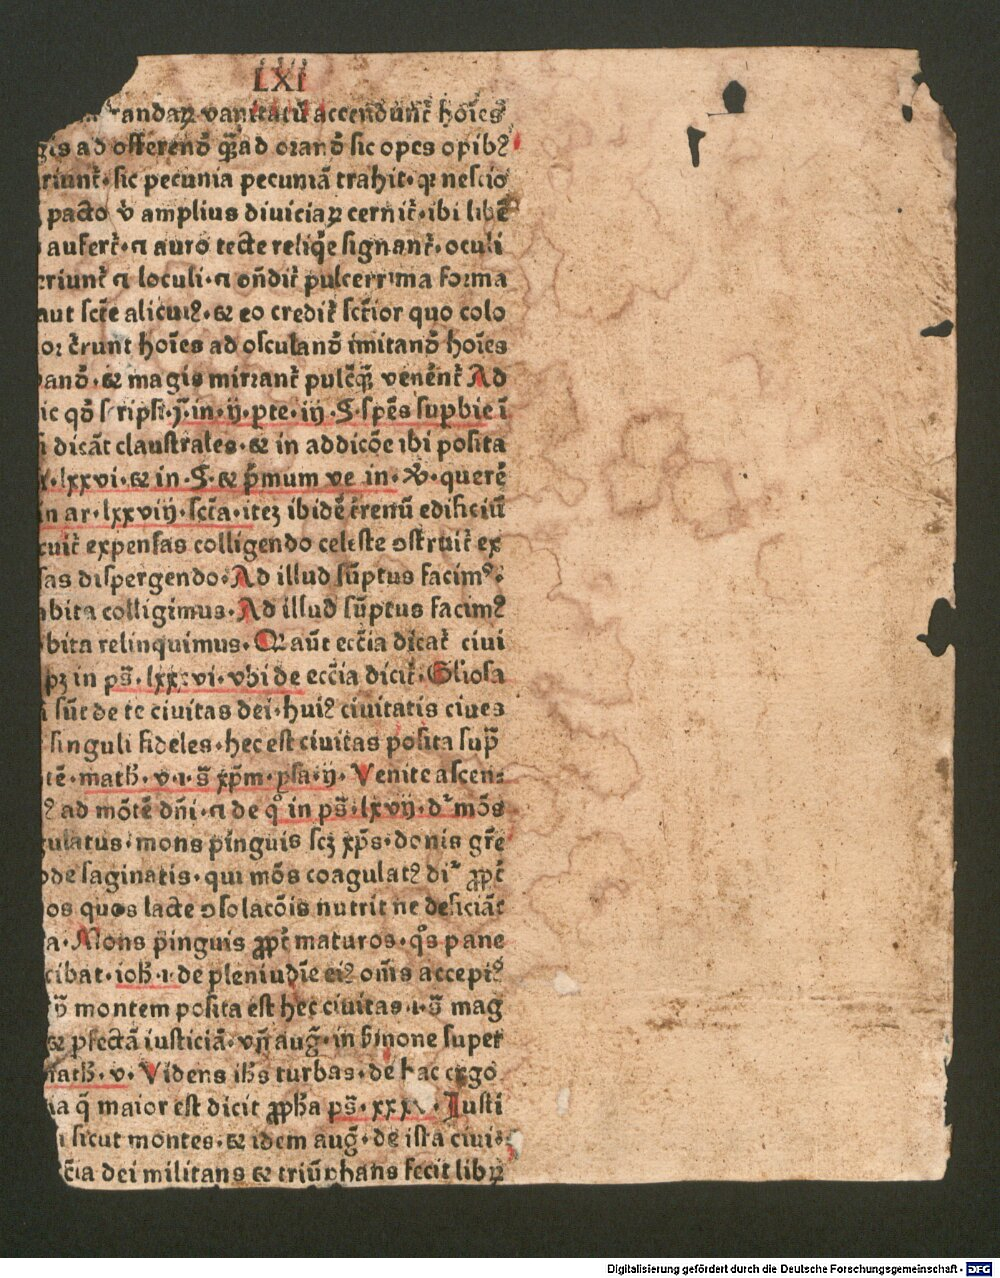 LXI
randaꝝ vanitatū accendunt᷑ hoīes
gis ad offerenď q̄ꝫ ad oranď sic opes opibꝰ
riunt᷑·sic pecunia pecuniā trahit·qꝛ nescio
pacto vͦ amplius diviciaꝝ cernit᷑·ibi libē
aufert᷑·⁊ auro tecte reliq̄e signant᷑·oculi
criunt᷑ ⁊ loculi·⁊ on̄dit᷑ pulcerrima forma
aut sct̄e alicuiꝰ·⁊ eo credit᷑ sct̄ior quo colo
or c̄runt hoīes ad osculanď imitanď hoīes
anď·⁊ magis mirrant᷑ pulc̄q̄ꝫ venēnt᷑ Ad
ic qď scripsi·j̄·in·ij·pte·iij·S·sp̄es supbie ī
i dicāt claustrales·⁊ in addicōe ibi posita
lxxvi·⁊ in·S·⁊ p̄mum ve in·querē
n ar·lxxviij·sct̄a·iteꝫ ibidē t̄renū edificiū
cuit᷑ expensas colligendo celeste ꝯstruit᷑ ex
sas dispergendo·Ad illud sūptus facimꝰ·
bita colligimus·Ad illud sūptus facimꝰ
bita relinquimus·Qꝛ aūt ecc̄ia dicat᷑ ciui
pꝫ in ps̄·lxxxvi·vbi de ecc̄ia dicit᷑·Gl̄iosa
i sūt de te ciuitas dei·huiꝰ ciuitatis ciues
singuli fideles·hec est ciuitas posita sup̄
tē·math̄·v·i·s̄ xp̄m·ysa·ij·Venite ascen-
ꝰ ad mōtē dn̄i·⁊ de qͦ in ps̄·lxvij·dʳ mōs
gulatus·mons pinguis scꝫ xp̄s·donis gr̄e
ode saginatis·qui mōs coagulatꝰ diʳ ꝓpt᷑
os quos lacte ꝯsolacōis nutrit ne deficiāt
a·Mons pinguis ꝓpt᷑ maturos·qͦs pane
cibat·ioh̄·i·de pleniudīe eiꝰ om̄s accepiꝰ
p̄ montem posita est hec ciuitas·i·s̄ mag
⁊ pfectā iusticiā·vn̄ aug̅·in s̄mone super
math̄·v·Videns ih̄s turbas·de hac ergo
ia q̄ maior est dicit ꝓph̄a ps̄·xxxv·Iusti
i sicut montes·⁊ idem aug̅·de ista ciui-
c̄ia dei militans ⁊ triūphans fecit libꝝ
Digitalisierung gefördert durch die Deutsche Forschungsgemeinschaft - DFG